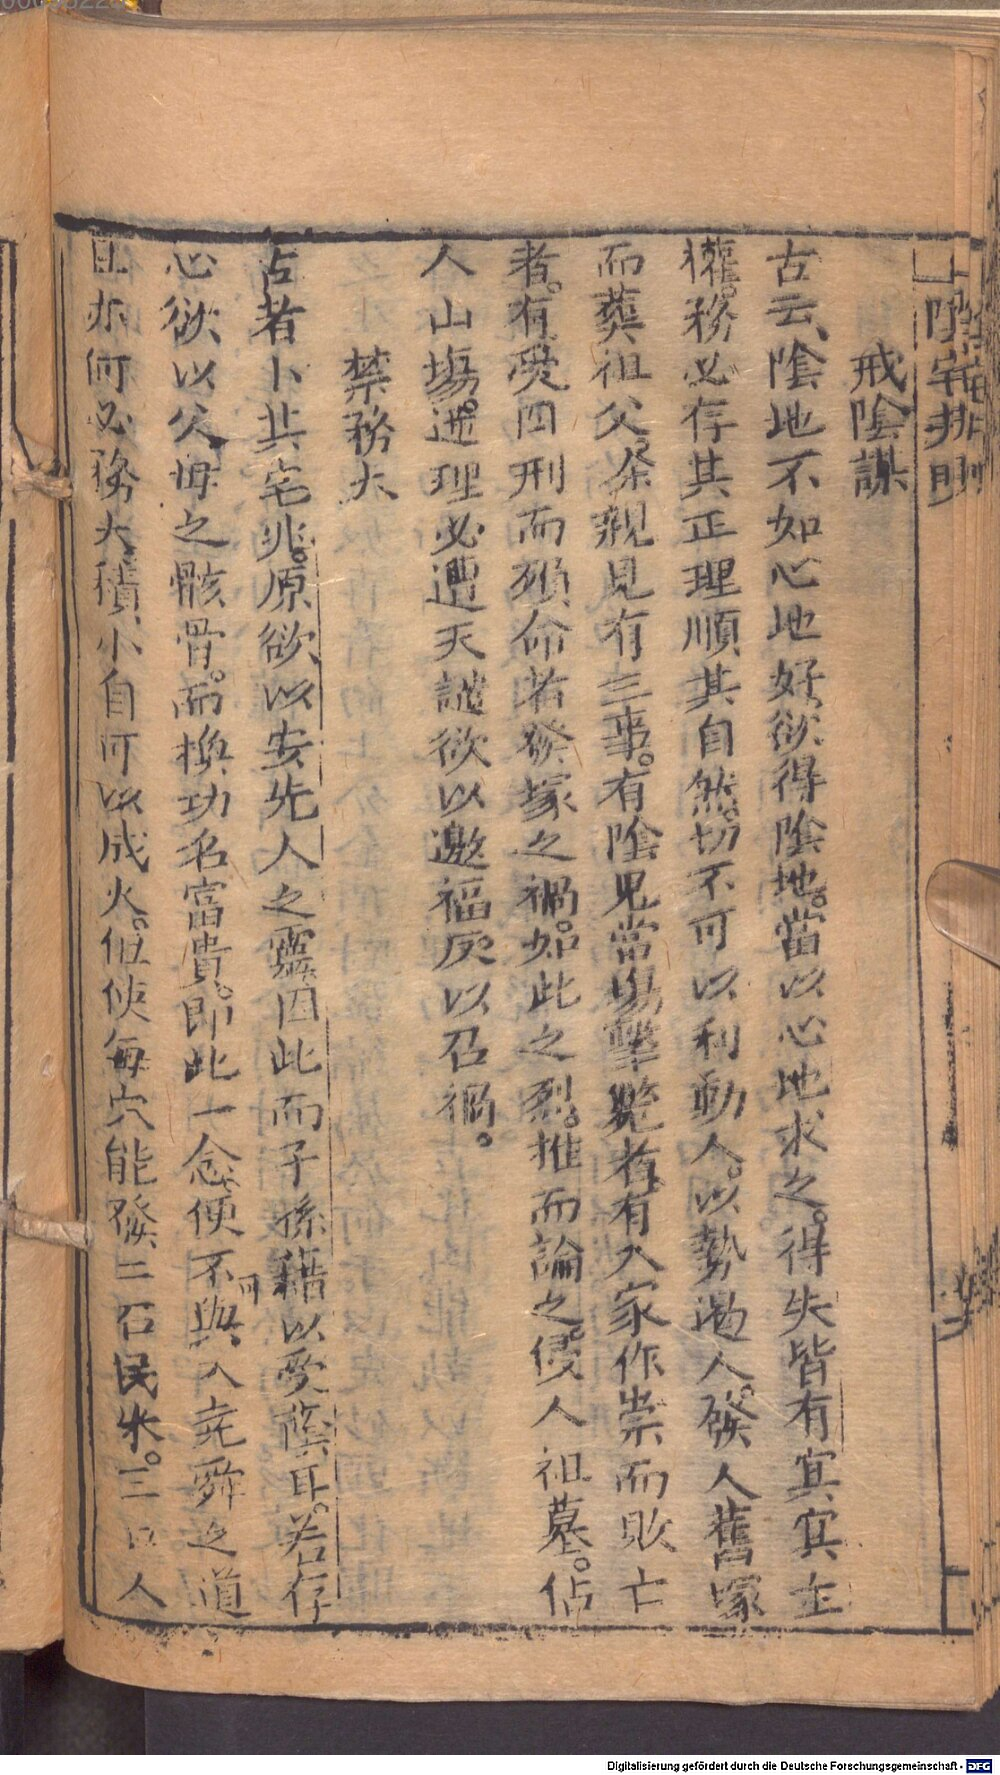 陰宅捷明
戒陰謀
古云、陰地不如心地好、欲得陰地。當以心地求之。得失皆有冥冥主
權。務必存其正理順其自然。切不可以利動人。以勢逼人。發人舊塚
而葬祖父。余親見有三事。有陰兒當場擊斃者、有入家作祟而敗亡
者。有受四刑而殞命若發塚之禍。如此之烈。推而論之。侵人祖墓。佔
人山場。逆理必遭天譴欲以邀福反以召禍。
禁務大
古者卜其宅兆。原欲以安先人之靈因此而子孫藉以受蔭耳。若存
心欲以父母之骸骨。而換功名富貴。即此一念便不可與入堯舜之道
且亦何必務大、積小自可以成大。但使每穴能發二石民米。三口人
Digitalisierung gefördert durch die Deutsche Forschungsgemeinschaft - DFG